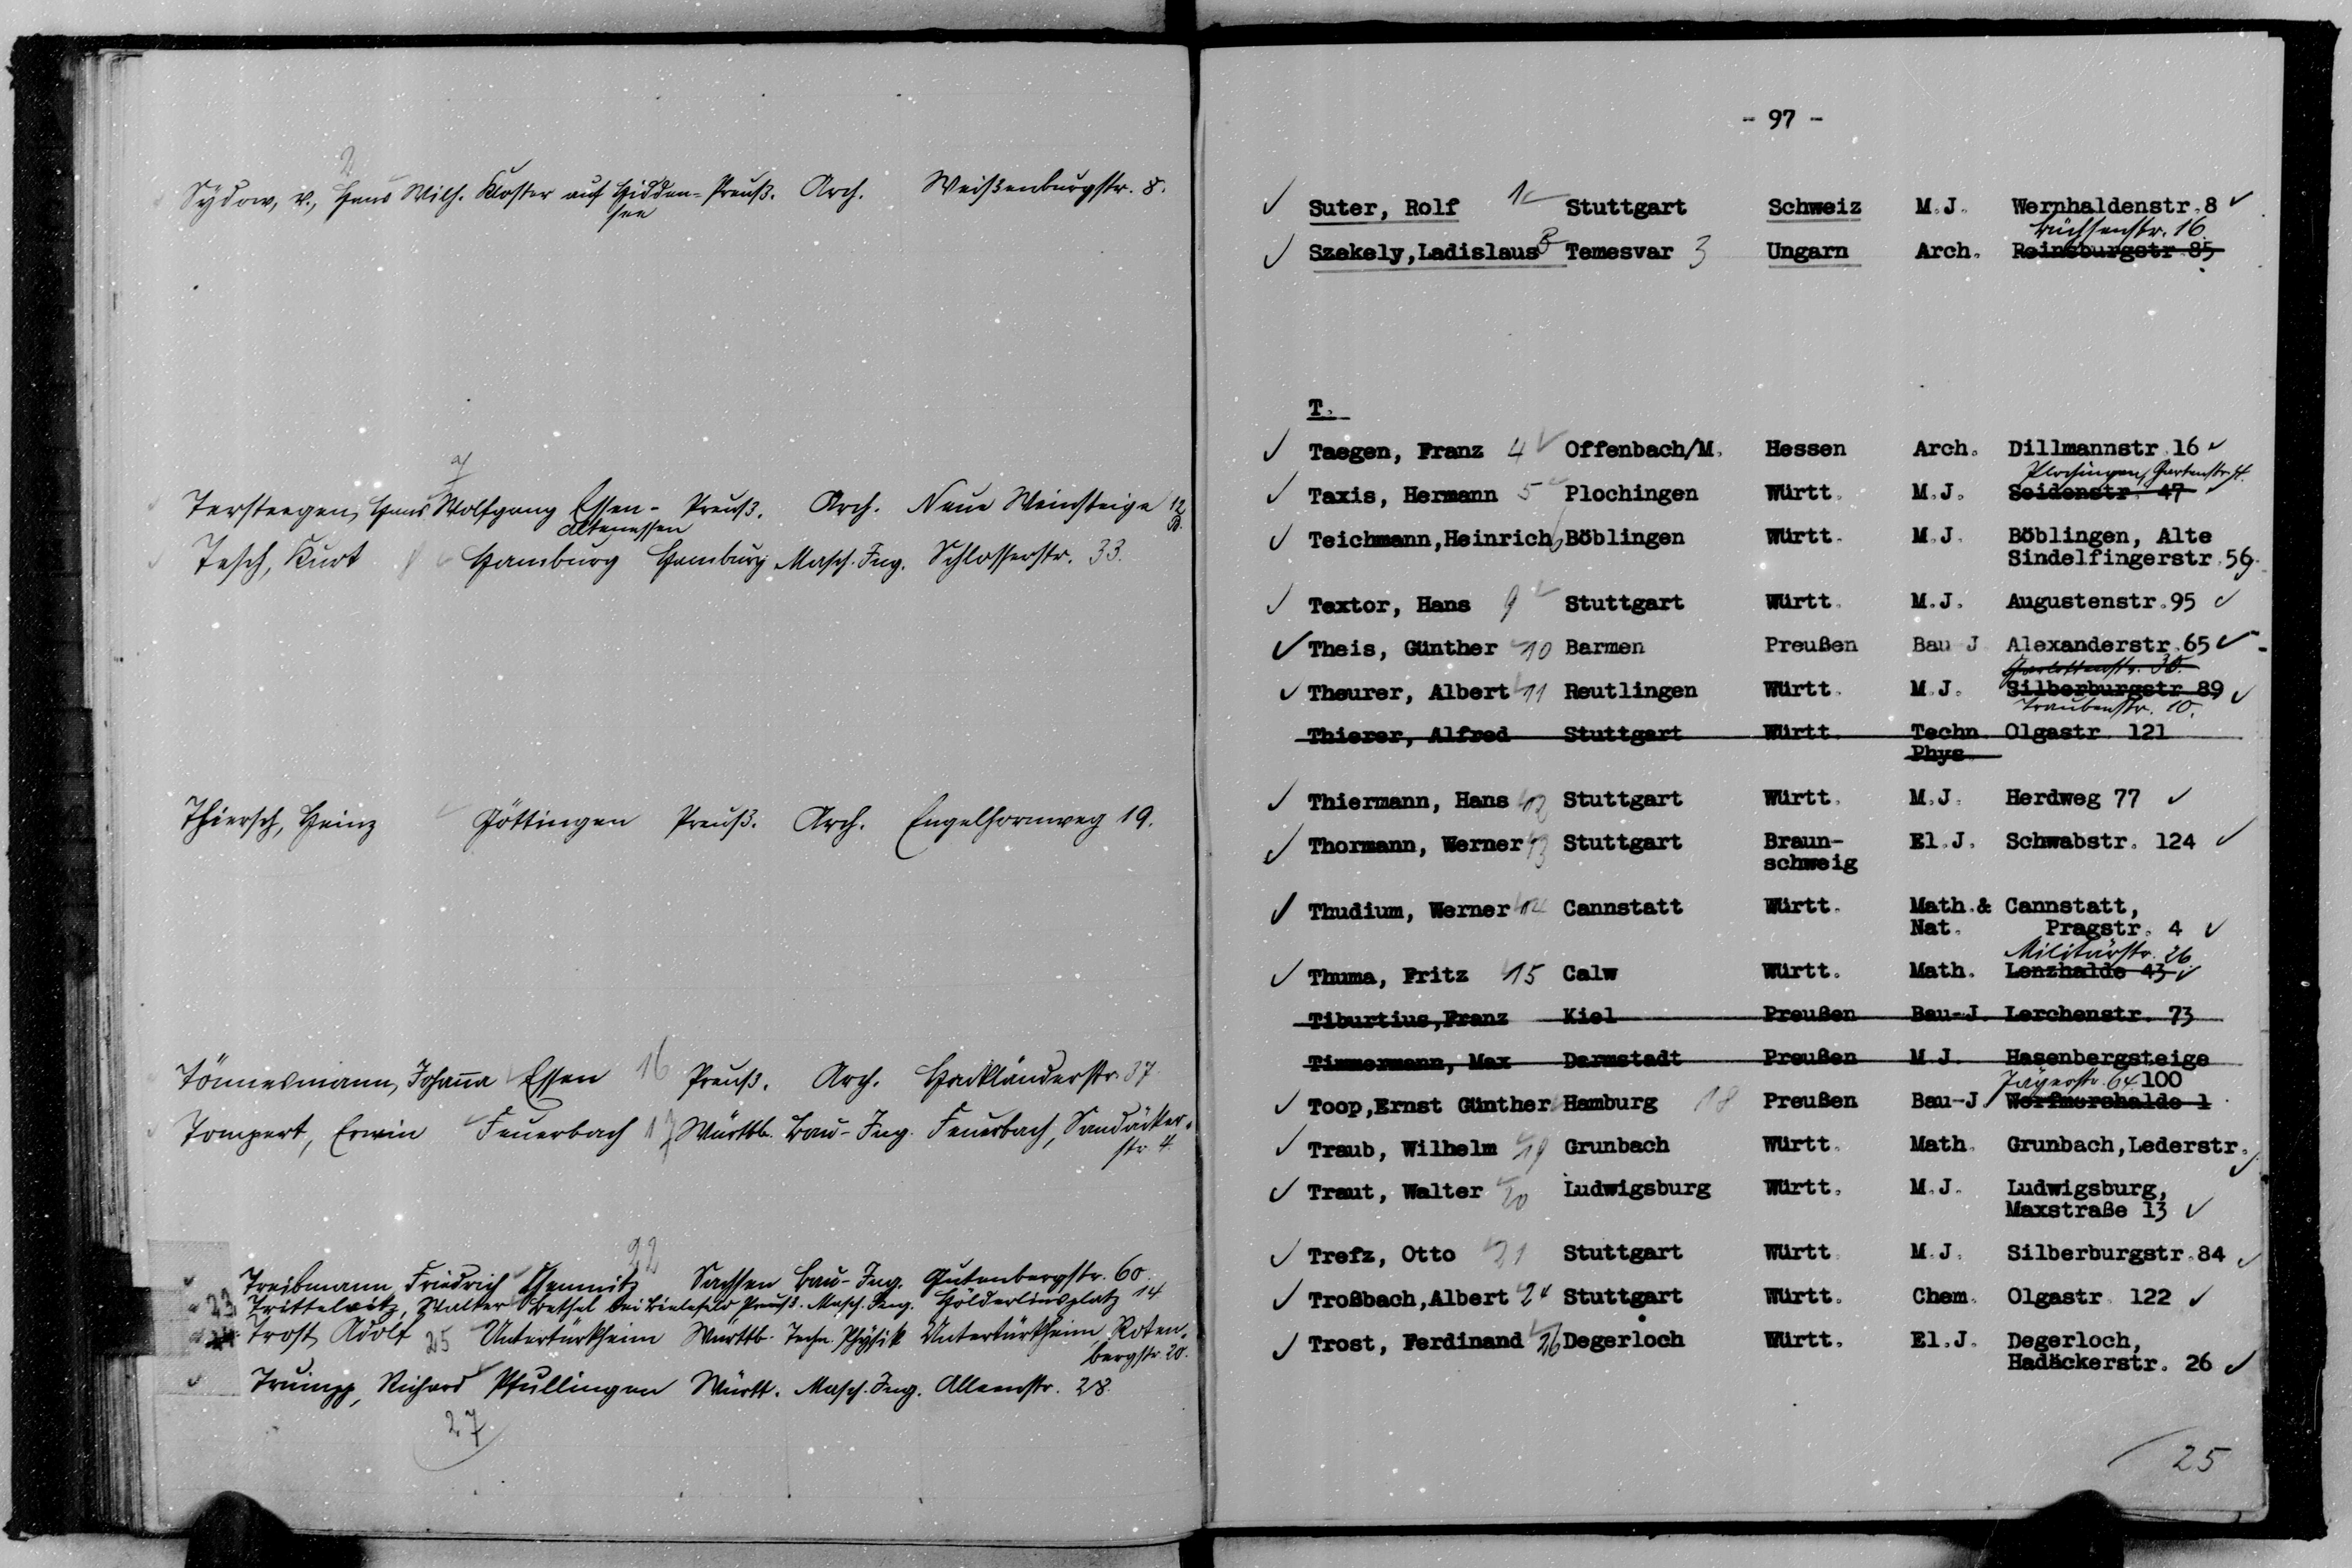 2
Sydow, v., Hans Wilh. Kloster auf Hidden- Preuß. Arch. Weißenburgstr. 8.
see
7
Tersteegen, Hans Wolfgang Essen- Preuß. Arch. Neue Weinsteige 12
Altenessen
Tesch, Kurt 8 Hamburg Hamburg Masch. Ing. Schlosserstr. 33.
Thiersch, Heinz Göttingen Preuß. Arch. Engelhornweg 19.
Tönnesmann, Johanna Essen 16 Preuß. Arch. Hackländerstr. 37
Tompert, Erwin Feuerbach 17 Württb. Bau-Ing. Feuerbach, Sandäcker-
str. 4.
22
Treibmann, Friedrich Chemnitz Sachsen Bau-Ing. Gutenbergstr. 60.
23 Trittelvitz, Walter Bethel bei Bielefeld, Preuß. Masch. Ing. Hölderlinsplatz 14
Trost, Adolf 25 Untertürkheim Württb. Techn. Physik Untertürkheim, Roten-
bergstr. 20.
Trumpp, Richard Pfullingen Württ. Masch. Ing. Alleenstr. 28.
27
- 97 -
Suter, Rolf 1 Stuttgart Schweiz M.J. Wernhaldenstr.8
Büchsenstr. 16.
Szekely,Ladislaus Temesvar 3 Ungarn Arch. Reinsburgstr 85
T.
Taegen, Franz 4 Offenbach/M. Hessen Arch. Dillmannstr.16
Plochingen, Gartenstr.
Taxis, Hermann 5 Plochingen Württ. M.J. Seidenstr. 47
Teichmann,Heinrich 6 Böblingen Württ. M.J. Böblingen, Alte
Sindelfingerstr.56.
Textor, Hans 9 Stuttgart Württ. M.J. Augustenstr.95
Theis, Günther 10 Barmen Preußen Bau J Alexanderstr.65
Charlottenstr. 30.
Theurer, Albert 11 Reutlingen Württ. M.J. Silberburgstr 89
Traubenstr. 10.
Thierer, Alfred Stuttgart Württ. Techn. Olgastr. 121
Phys.
Thiermann, Hans 12 Stuttgart Württ. M.J. Herdweg 77
Thormann, Werner 13 Stuttgart Braun- El.J. Schwabstr. 124
schweig
Thudium, Werner 14 Cannstatt Württ. Math.& Cannstatt,
Nat. Pragstr. 4
Militärstr. 26.
Thuma, Fritz 15 Calw Württ. Math. Lenzhalde 43
Tiburtius,Franz Kiel Preußen Bau-J. Lerchenstr. 73
Timmermann, Max Darmstadt Preußen M.J. Hasenbergsteige
Jägerstr. 64. 100
Toop,Ernst Günther Hamburg 18 Preußen Bau-J. Werfmershalde 1
Traub, Wilhelm 19 Grunbach Württ. Math. Grunbach,Lederstr.
Traut, Walter 20 Ludwigsburg Württ. M.J. Ludwigsburg,
Maxstraße 13
Trefz, Otto 21 Stuttgart Württ. M.J. Silberburgstr.84
Troßbach,Albert 24 Stuttgart Württ. Chem. Olgastr. 122
Trost, Ferdinand 26 Degerloch Württ. El.J. Degerloch,
Hadäckerstr. 26
25